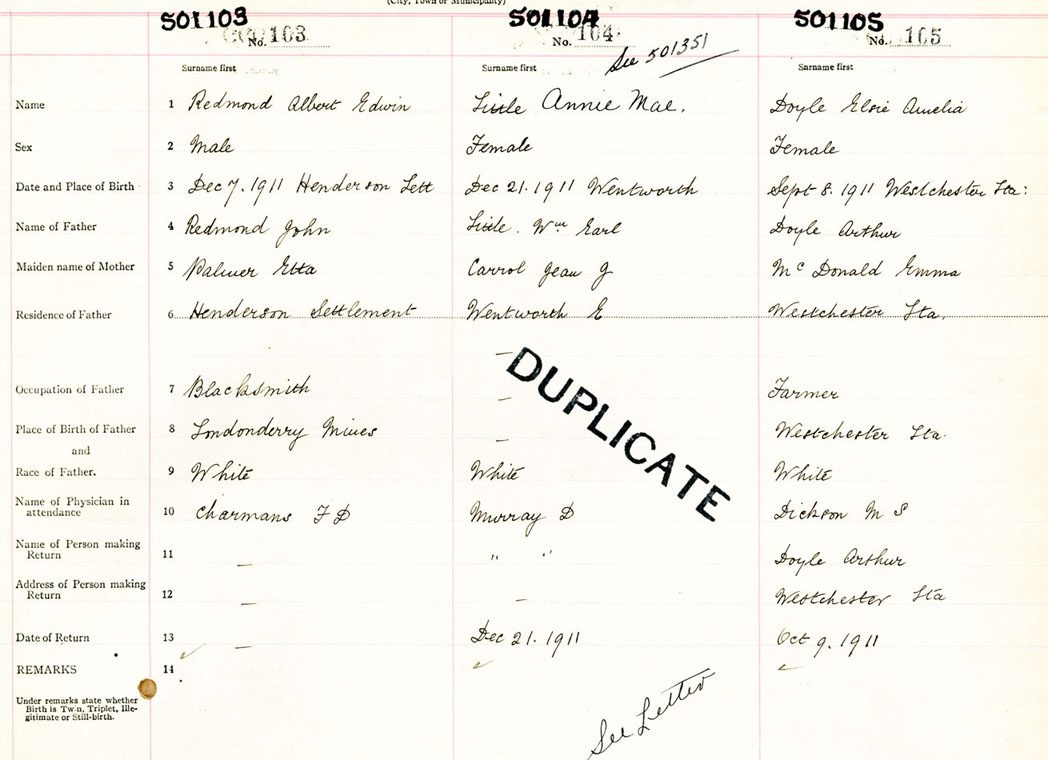 (City, Town or Municipality)
501103 501104 501105
No. 103 No. 104 See 501351 No. 105
Surname first Surname first Surname first
Name 1 Redmond Albert Edwin Little Annie Mae. Doyle Elsie Amelia
Sex 2 Male Female Female
Date and Place of Birth 3 Dec 7. 1911 Henderson Sett Dec 21. 1911 Wentworth Sept 8. 1911 Westchester Sta:
Name of Father 4 Redmond John Little. Wm Earl Doyle Arthur
Maiden name of Mother 5 Palmer Etta Carrol Jean J McDonald Emma
Residence of Father 6 Henderson Settlement Wentworth E Westchester Sta.
—
Occupation of Father 7 Blacksmith — Farmer
Place of Birth of Father 8 Londonderry Mines — Westchester Sta.
and
Race of Father. 9 White White White
DUPLICATE
Name of Physician in
attendance 10 Charmans F D Murray D Dickson M S
Name of Person making
Return 11 — " " Doyle Arthur
Address of Person making
Return 12 — — Westchester Sta
Date of Return 13 — Dec 21. 1911 Oct 9. 1911
REMARKS 14
Under remarks state whether
Birth is Twin, Triplet, Ille-
gitimate or Still-birth.
See Letter